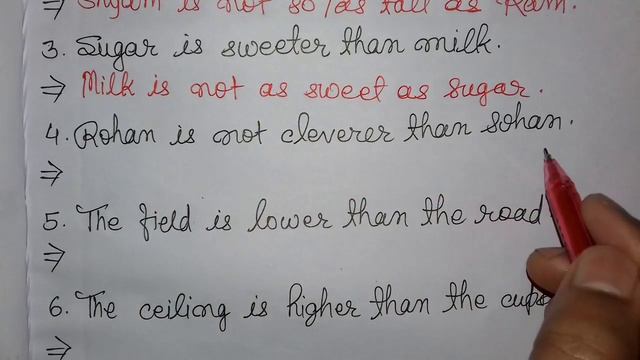 ⇒ Shyam is not so/as tall as Ram.
3. Sugar is sweeter than milk.
⇒ Milk is not as sweet as sugar.
4. Rohan is not cleverer than Sohan.
⇒
5. The field is lower than the road
⇒
6. The ceiling is higher than the
⇒